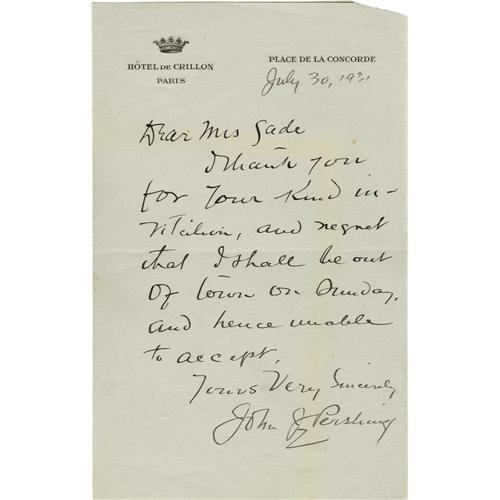 HÔTEL DE CRILLON
PARIS
PLACE DE LA CONCORDE
July 30, 1931
Dear Mrs Gade
I thank you
for your kind in-
vitation, and regret
that I shall be out
of town on Sunday,
and hence unable
to accept.
Yours Very Sincerely
John J Pershing